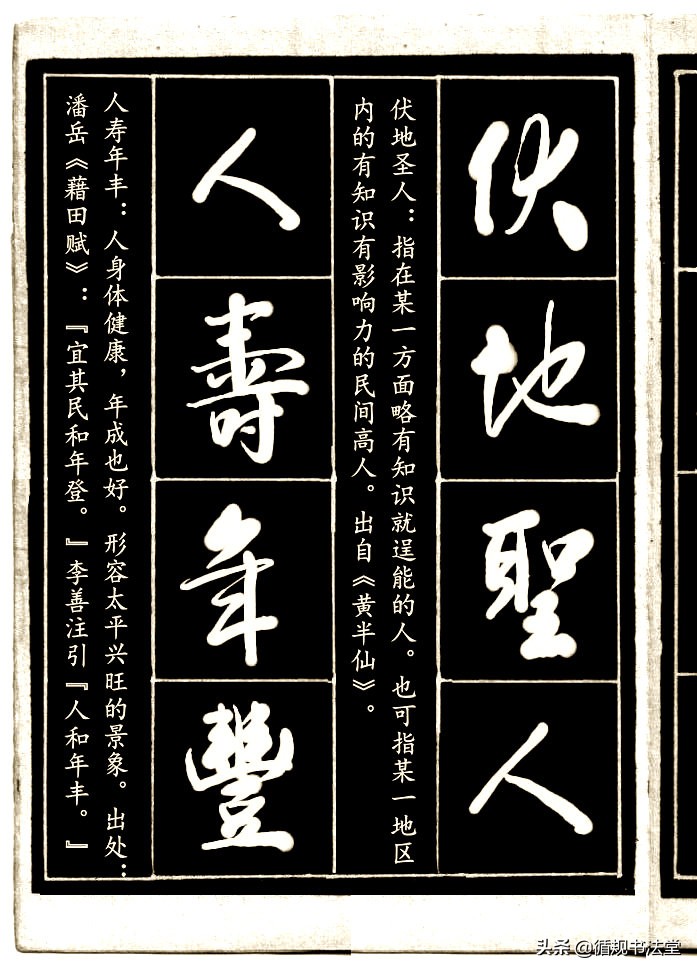 伏地聖人
伏地圣人：指在某一方面略有知识就逞能的人。也可指某一地区
内的有知识有影响力的民间高人。出自《黄半仙》。
人壽年豐
人寿年丰：人身体健康，年成也好。形容太平兴旺的景象。出处：
潘岳《藉田赋》：『宜其民和年登。』李善注引『人和年丰。』
头条 @循规书法堂